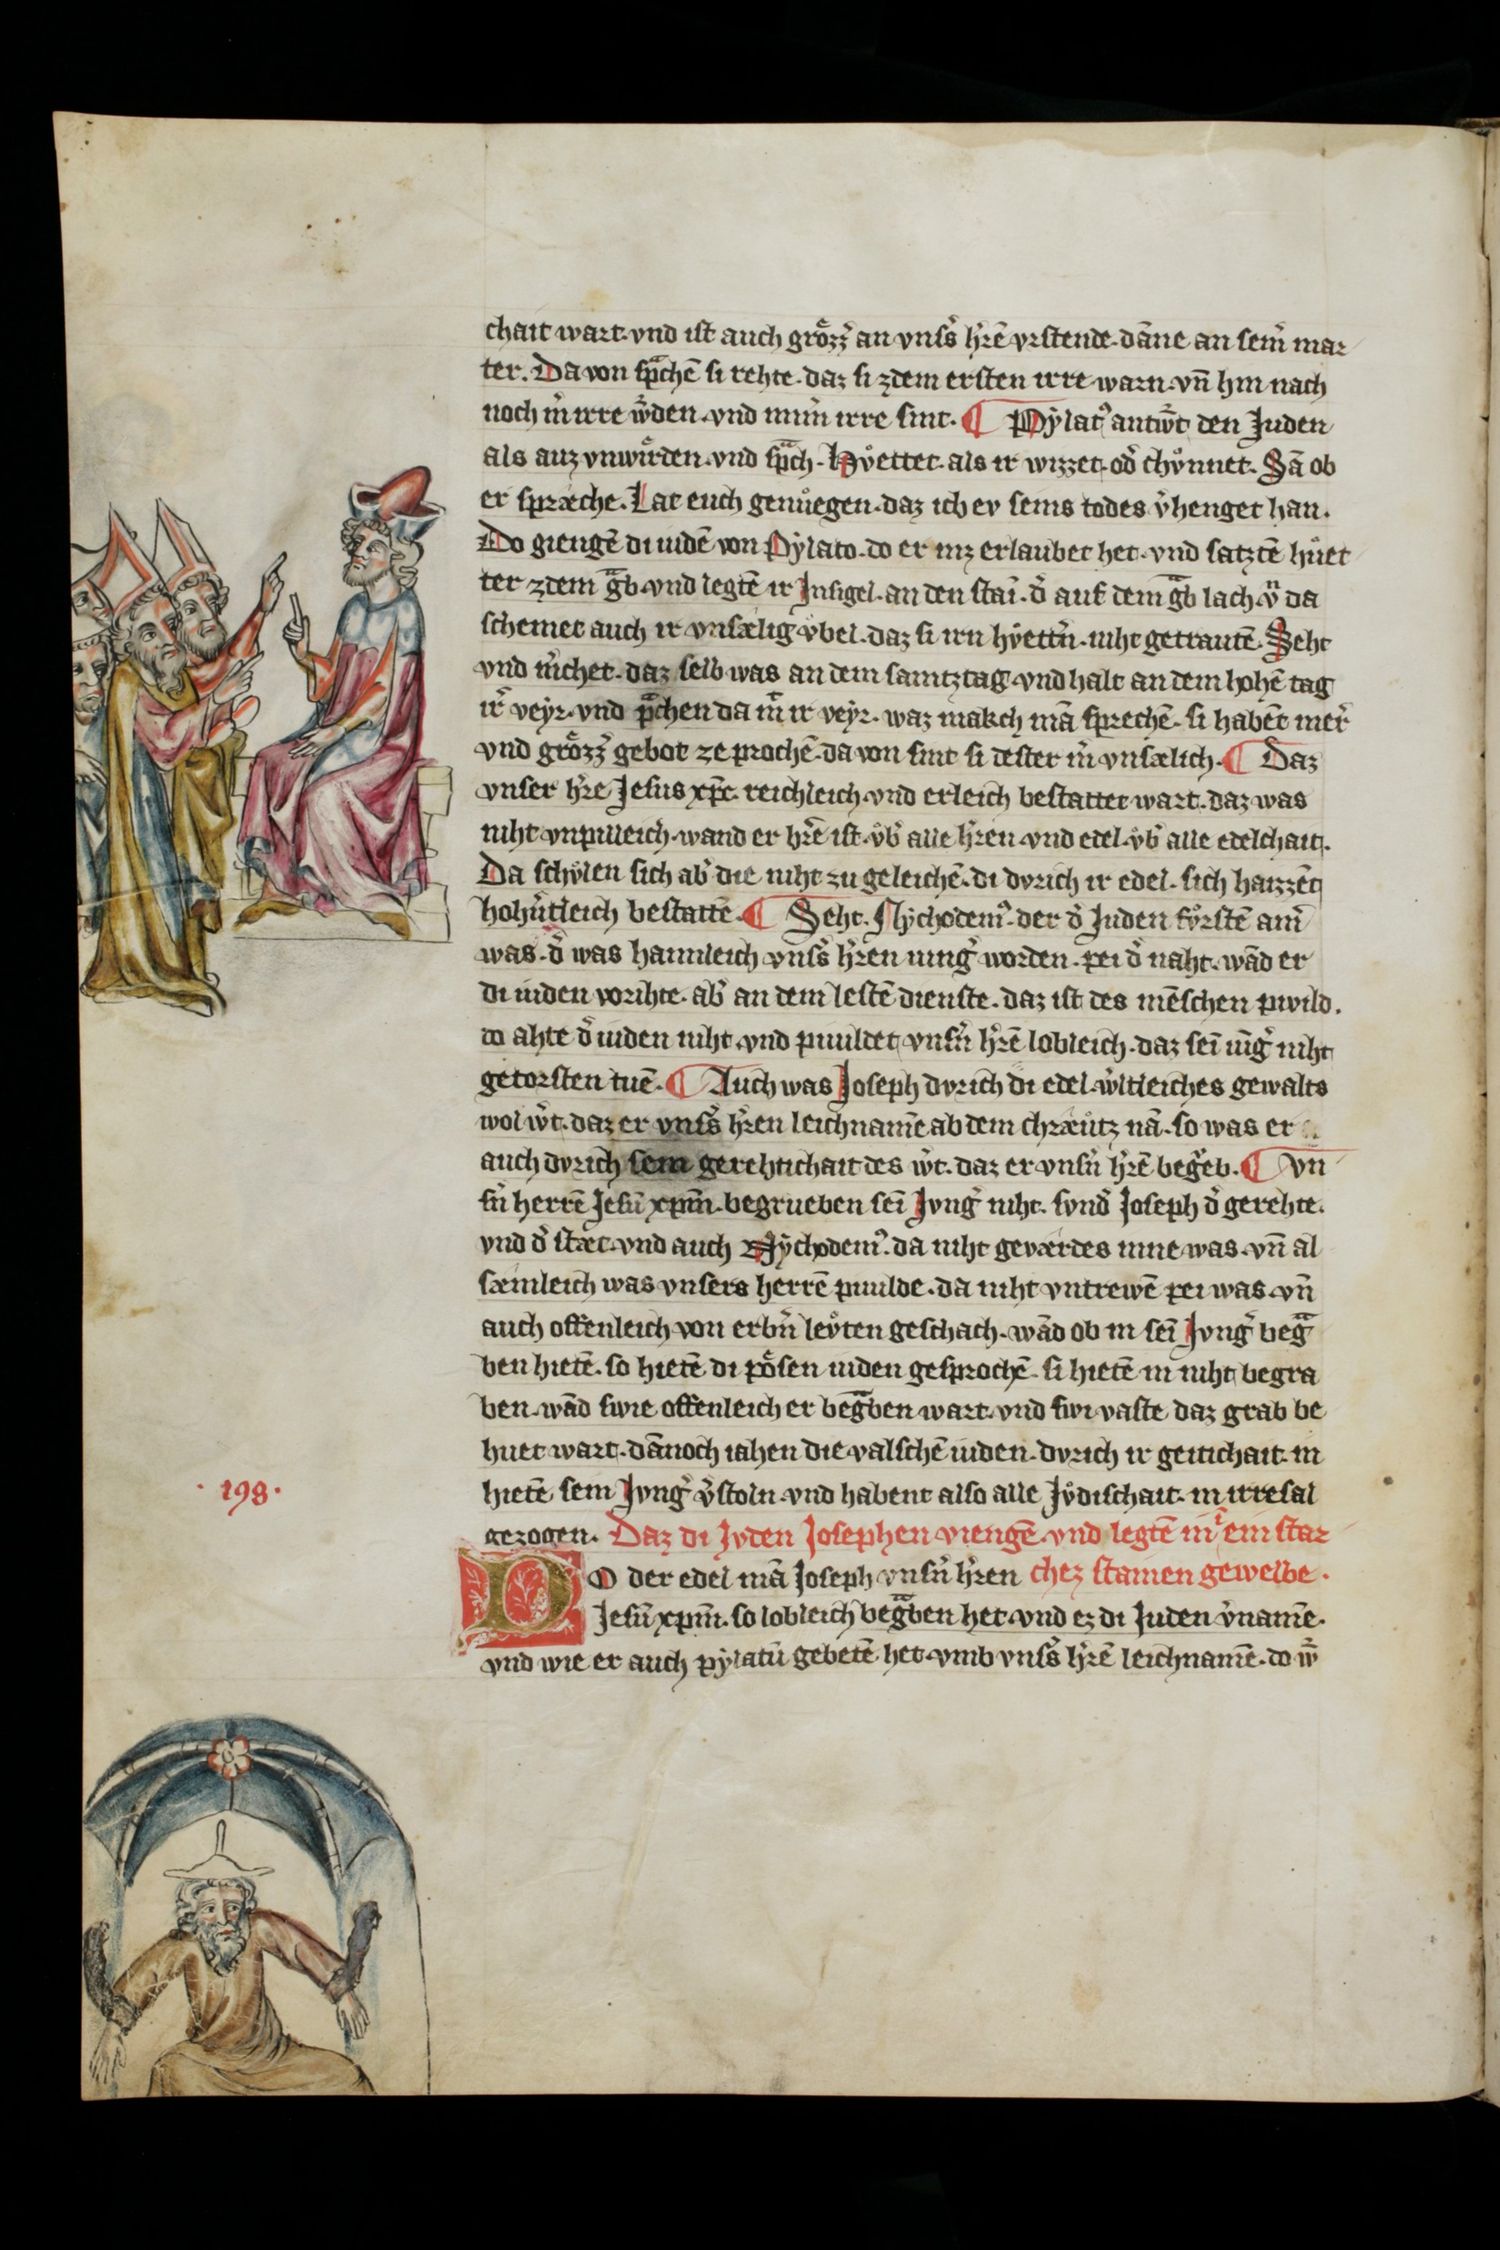 chait wart. vnd ist auch grözz͛ an vns͛s h͛rē vrstende. dāne an seim̄ mar
ter. Da von spͣchē si rehte. daz si zdem ersten irre warn. vn̄ hin nach
noch m͛ irre w͛den. vnd nim͛ irre sint. ¶ Pẏlatꝰ antw͛t den Juden
als auz vnwürden. vnd spͣch. Hv̊ettet. als ir wizzet. od͛ chv̊nnet. Sā ob
er spræche. Lat euch genůegen. daz ich ev seins todes v͛henget han.
Do giengē di iudē von Pẏlato. do er inz erlaubet het. vnd satztē hůet
ter zdem gͣb. vnd legtē ir Insigel. an den stai͛. d͛ auf dem gͣb lach. vn̄ da
scheinet auch ir vnsælig v̊bel. daz si irn hv̊ett͛n. niht getrautē. Seht
vnd m͛chet. daz selb was an dem samtztag. vnd halt an dem hohē tag
ir͛ veyr. vnd pͣchen da mͥt ir veyr. waz makch mā sprechē. si habēt mer͛
vnd grözz͛ gebot ze prochē. da von sint si dester m͛ vnsælich. ¶ Daz
vnser h͛re Jesus xp̄c. reichleich. vnd erleich bestattet wart. daz was
niht vnpilleich. wand er h͛re ist. v̊b͛ alle h͛ren. vnd edel. v̊b͛ alle edelchait.
Da schv̊len sich ab͛ die niht zu geleichē. di dvrich ir edel. sich haizzēt
hohu͛tleich bestattē. ¶ Seht. Nẏchodemꝰ. der d͛ Juden fv̊rstē ain͛
was. d͛ was haimleich vns͛s h͛ren iung͛ worden. pei d͛ naht. wād er
di iuden vorihte. ab͛ an dem lestē dienste. daz ist des mēschen piuild.
do ahte d͛ iuden niht. vnd piuildet vns͛n h͛rē lobleich. daz sei͛ iūg͛ niht
getorsten tuē. ¶ Auch was Joseph dvrich di edel. w͛ltleiches gewalts
wol w͛t. daz er vns͛s h͛ren leichnamē ab dem chræůtz nā. so was er
auch dvrich sein gerehtichait des w͛t. daz er vns͛n h͛rē begͣeb. ¶ Vn
s͛n herrē Jesū xp̄m. begrueben sei͛ Jvng͛ niht. svnd͛ Joseph d͛ gerehte.
vnd d͛ stæt. vnd auch Nẏchodemꝰ. da niht geværdes inne was. vn̄ al
sæmleich was vnsers herrē piuilde. da niht vntrewē pei was. vn̄
auch offenleich von erbn͛ lev̊ten geschach. wād ob in sei͛ Jvng͛ begͣ
ben hietē. so hietē di pösen iuden gesprochē. si hietē in niht begra
ben. wād swie offenleich er begͣben wart. vnd swi vaste daz grab be
huet wart. dānoch iahen die valschē iuden. dvrich ir geitichait. in
hietē sein Jvng͛ v͛stoln. vnd habent also alle Jv̊dischait. in irresal
gezogen. Daz di Jvden Josephen viengē. vnd legtē in͛ ein star
Do der edel mā Joseph vns͛n h͛ren chez stainen gewelbe.
·198·
Jesū xp̄m. so lobleich begͣben het. vnd ez di Juden v͛namē.
vnd wie er auch pẏlatū gebetē het. vmb vns͛s h͛rē leichnamē. do w͛